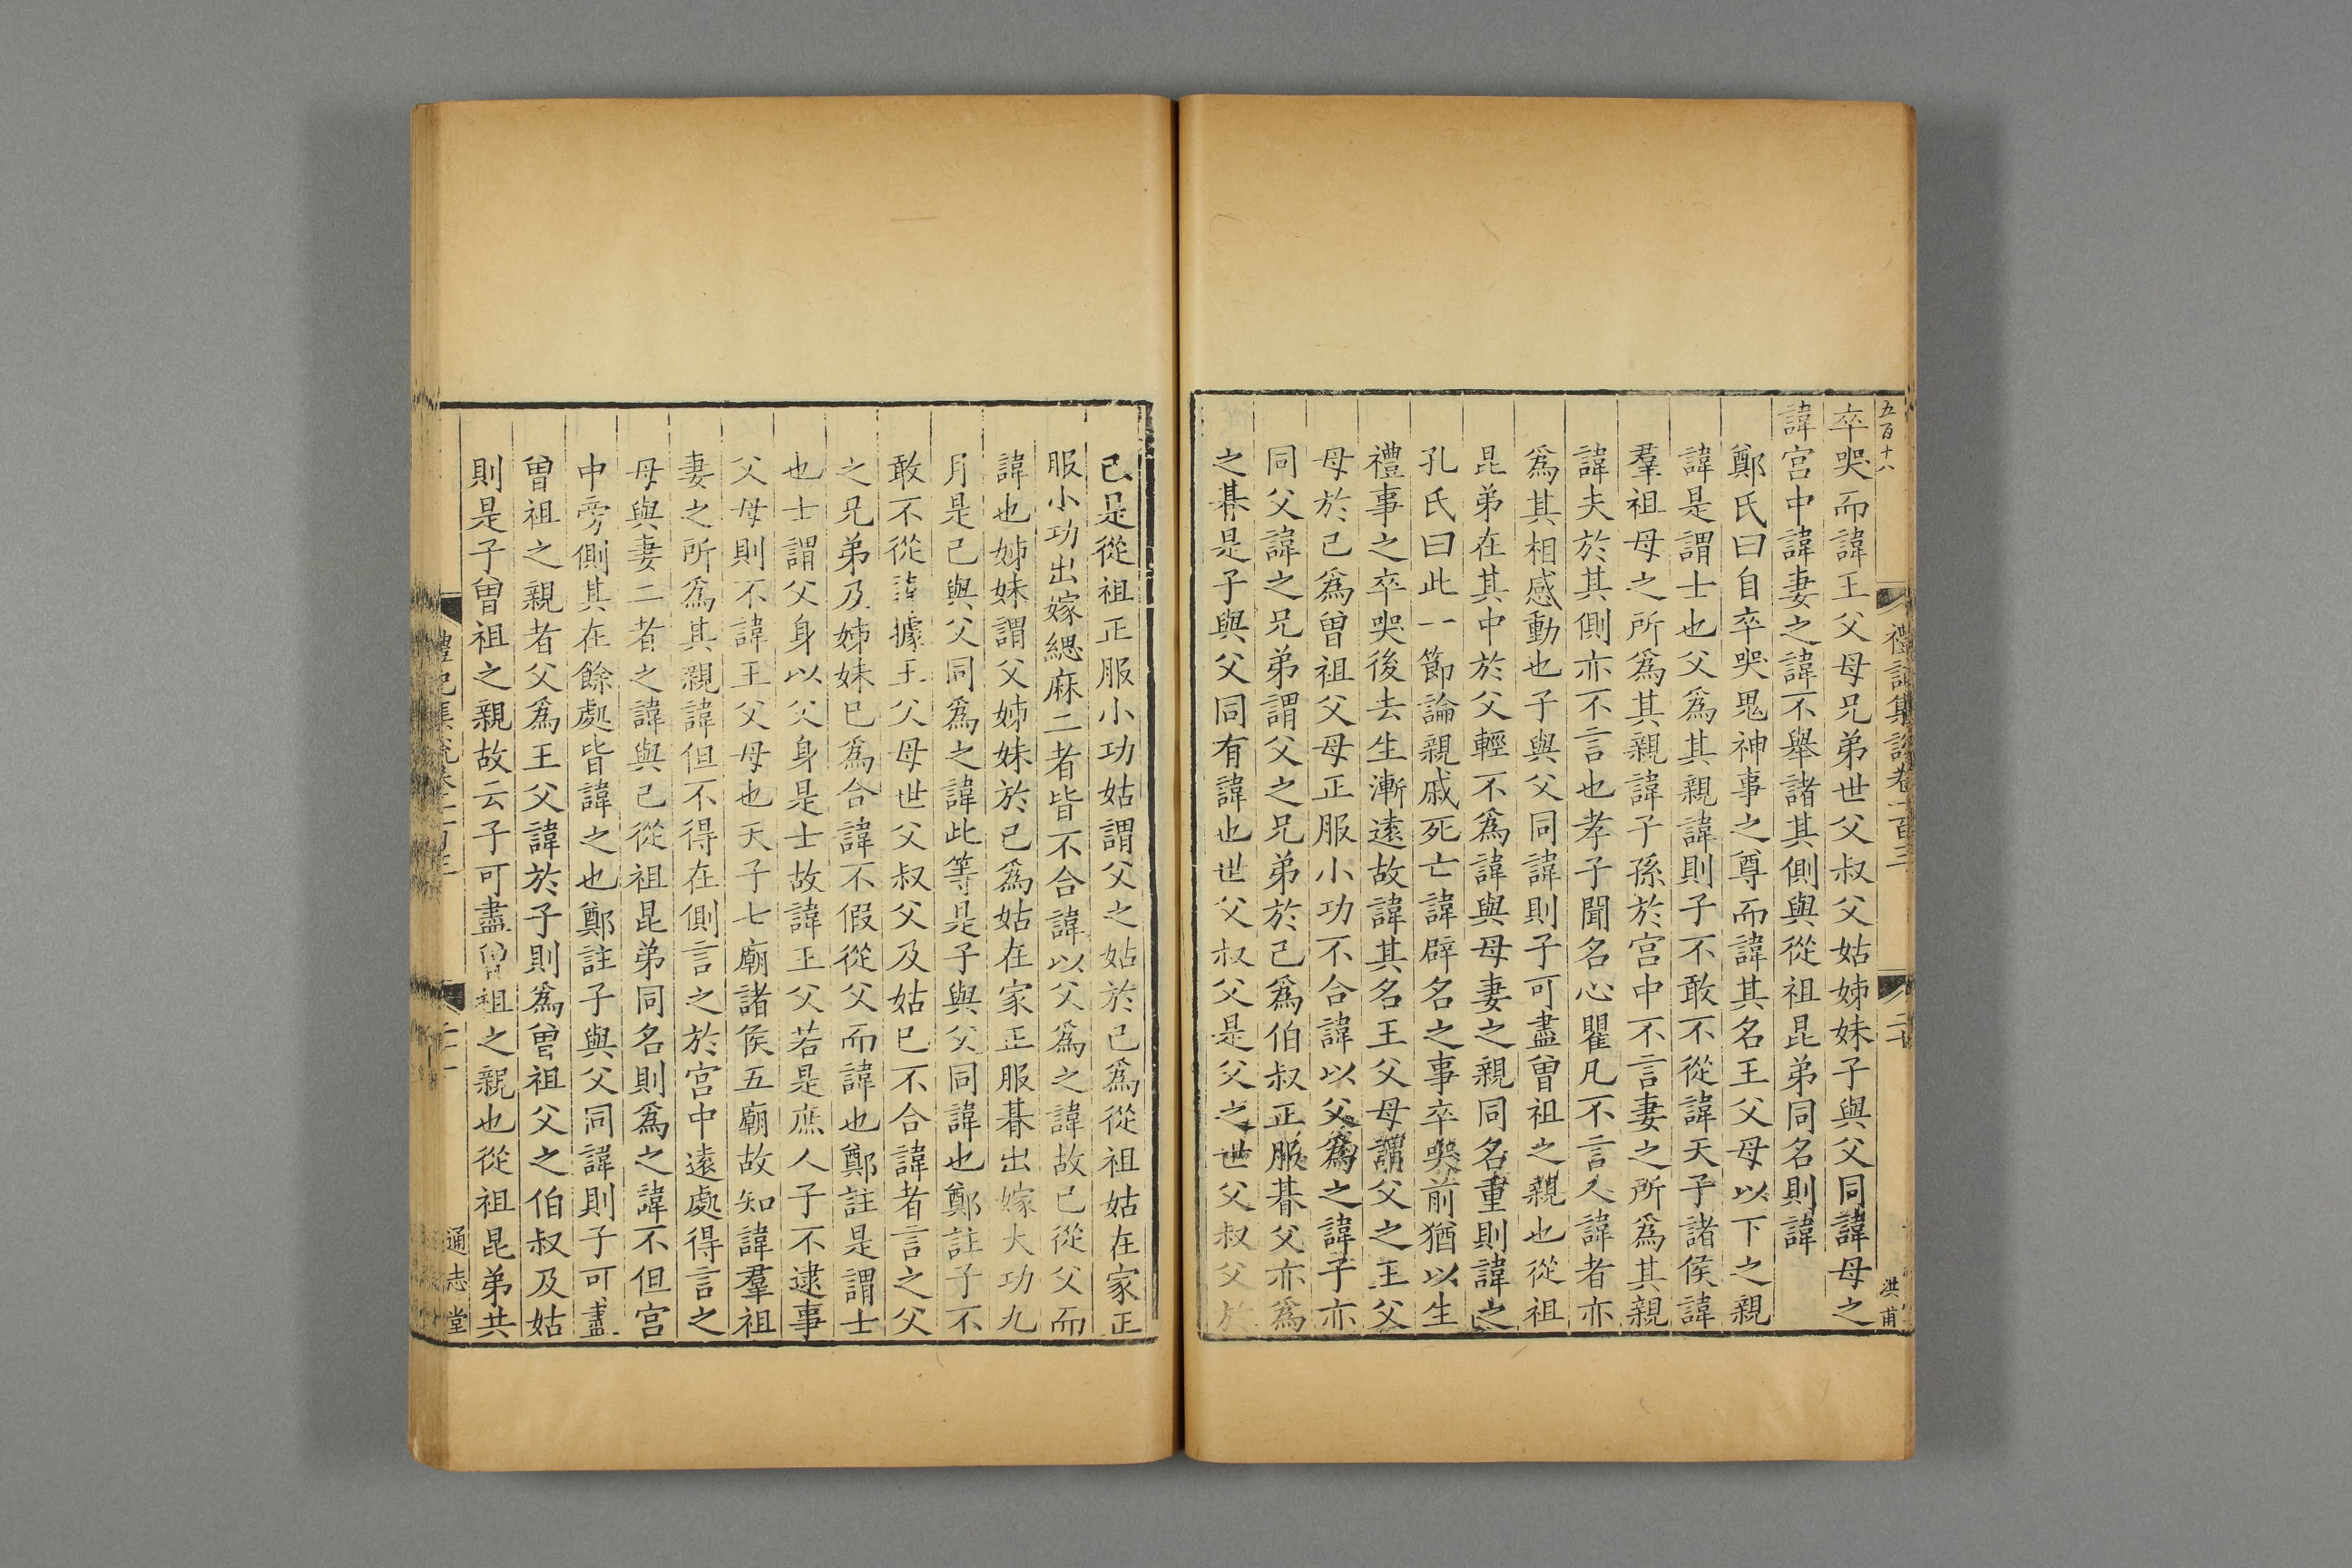 五百十八
禮記集說卷一百三
二十
洪甫
卒哭而諱王父母兄弟世父叔父姑姊妹子與父同諱母之
諱宮中諱妻之諱不舉諸其側與從祖昆弟同名則諱
鄭氏曰自卒哭鬼神事之尊而諱其名王父母以下之親
諱是謂士也父爲其親諱則子不敢不從諱天子諸侯諱
羣祖母之所爲其親諱子孫於宮中不言妻之所爲其親
諱夫於其側亦不言也孝子聞名心瞿凡不言人諱者亦
爲其相感動也子與父同諱則子可盡曾祖之親也從祖
昆弟在其中於父輕不爲諱與母妻之親同名重則諱之
孔氏曰此一節論親戚死亡諱辟名之事卒哭前猶以生
禮事之卒哭後去生漸遠故諱其名王父母謂父之王父
母於己爲曾祖父母正服小功不合諱以父爲之諱子亦
同父諱之兄弟謂父之兄弟於己爲伯叔正服朞父亦爲
之朞是子與父同有諱也世父叔父是父之世父叔父於
己是從祖正服小功姑謂父之姑於己爲從祖姑在家正
服小功出嫁緦麻二者皆不合諱以父爲之諱故已從父而
諱也姊妹謂父姊妹於己爲姑在家正服朞出嫁大功九
月是己與父同爲之諱此等是子與父同諱也鄭註子不
敢不從諱據王父母世父叔父及姑已不合諱者言之父
之兄弟及姊妹已爲合諱不假從父而諱也鄭註是謂士
也士謂父身以父身是士故諱王父若是庶人子不逮事
父母則不諱王父母也天子七廟諸侯五廟故知諱羣祖
妻之所爲其親諱但不得在側言之於宮中遠處得言之
母與妻二者之諱與己從祖昆弟同名則爲之諱不但宮
中旁側其在餘處皆諱之也鄭註子與父同諱則子可盡
曾祖之親者父爲王父諱於子則爲曾祖父之伯叔及姑
則是子曾祖之親故云子可盡曾祖之親也從祖昆弟共
通志堂